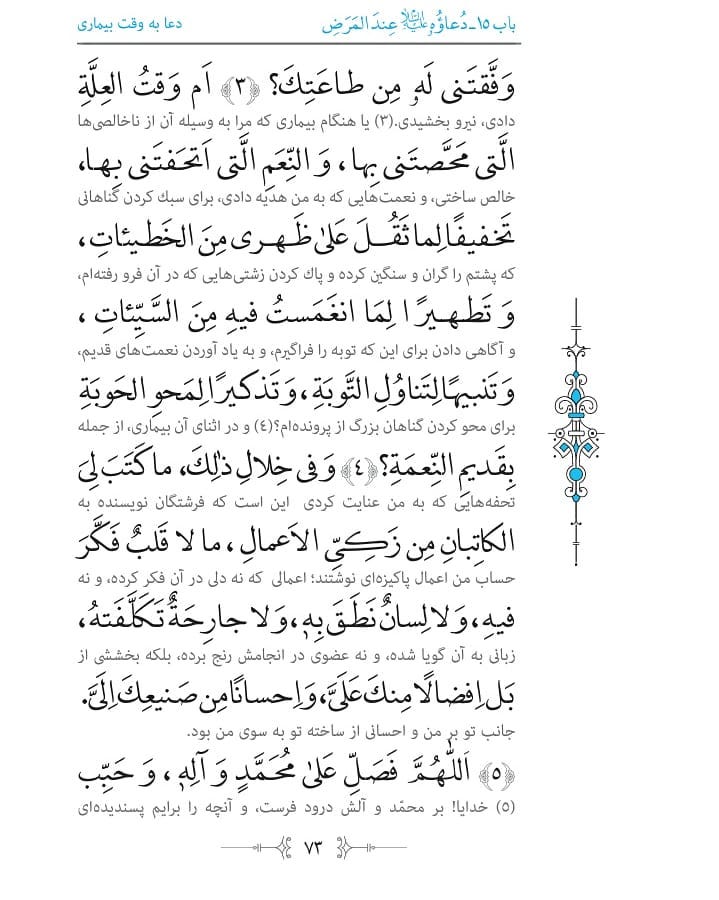 باب ۱۵ـ دُعاؤُهُ عَلَيْهِ‌السَّلامُ عِندَ المَرَضِ دعا به وقت بیماری
وَفَّقتَنی لَهُ مِن طاعَتِكَ؟ ﴿٣﴾ اَم وَقتُ العِلَّةِ
دادی، نیرو بخشیدی.(۳) یا هنگام بیماری که مرا به وسیله آن از ناخالصی‌ها
الَّتی مَحَّصتَنی بِها، وَ النِّعَمِ الَّتی اَتحَفتَنی بِها،
خالص ساختی، و نعمت‌هایی که به من هدیه دادی، برای سبك کردن گناهانی
تَخفیفًا لِما ثَقُلَ عَلیٰ ظَهری مِنَ الخَطیئاتِ،
که پشتم را گران و سنگین کرده و پاك کردن زشتی‌هایی که در آن فرو رفته‌ام،
وَ تَطهیرًا لِمَا انغَمَستُ فیهِ مِنَ السَّیِّئاتِ ،
و آگاهی دادن برای این که توبه را فراگیرم، و به یاد آوردن نعمت‌های قدیم،
وَ تَنبیهًا لِتَناوُلِ التَّوبَةِ، وَ تَذکیرًا لِمَحوِ الحَوبَةِ
برای محو کردن گناهان بزرگ از پرونده‌ام؟(٤) و در اثنای آن بیماری، از جمله
بِقَدیمِ النِّعمَةِ؟ ﴿٤﴾ وَ فی خِلالِ ذٰلِكَ، ما كَتَبَ لِیَ
تحفه‌هایی که به من عنایت کردی این است که فرشتگان نویسنده به
الكاتِبانِ مِن زَكِیِّ الاَعمالِ ، ما لا قَلبٌ فَكَّرَ
حساب من اعمال پاکیزه‌ای نوشتند؛ اعمالی که نه دلی در آن فکر کرده، و نه
فیهِ، وَ لا لِسانٌ نَطَقَ بِهِ، وَ لا جارِحَةٌ تَكَلَّفَتهُ،
زبانی به آن گویا شده، و نه عضوی در انجامش رنج برده، بلکه بخششی از
بَل اِفضالًا مِنكَ عَلَیَّ، وَ اِحسانًا مِن صَنیعِكَ اِلَیَّ.
جانب تو بر من و احسانی از ساخته تو به سوی من بود.
﴿٥﴾ اَللّٰهُمَّ فَصَلِّ عَلیٰ مُحَمَّدٍ وَ آلِهِ ، وَ حَبِّب
(٥) خدایا! بر محمّد و آلش درود فرست، و آنچه را برایم پسندیده‌ای
۷۳